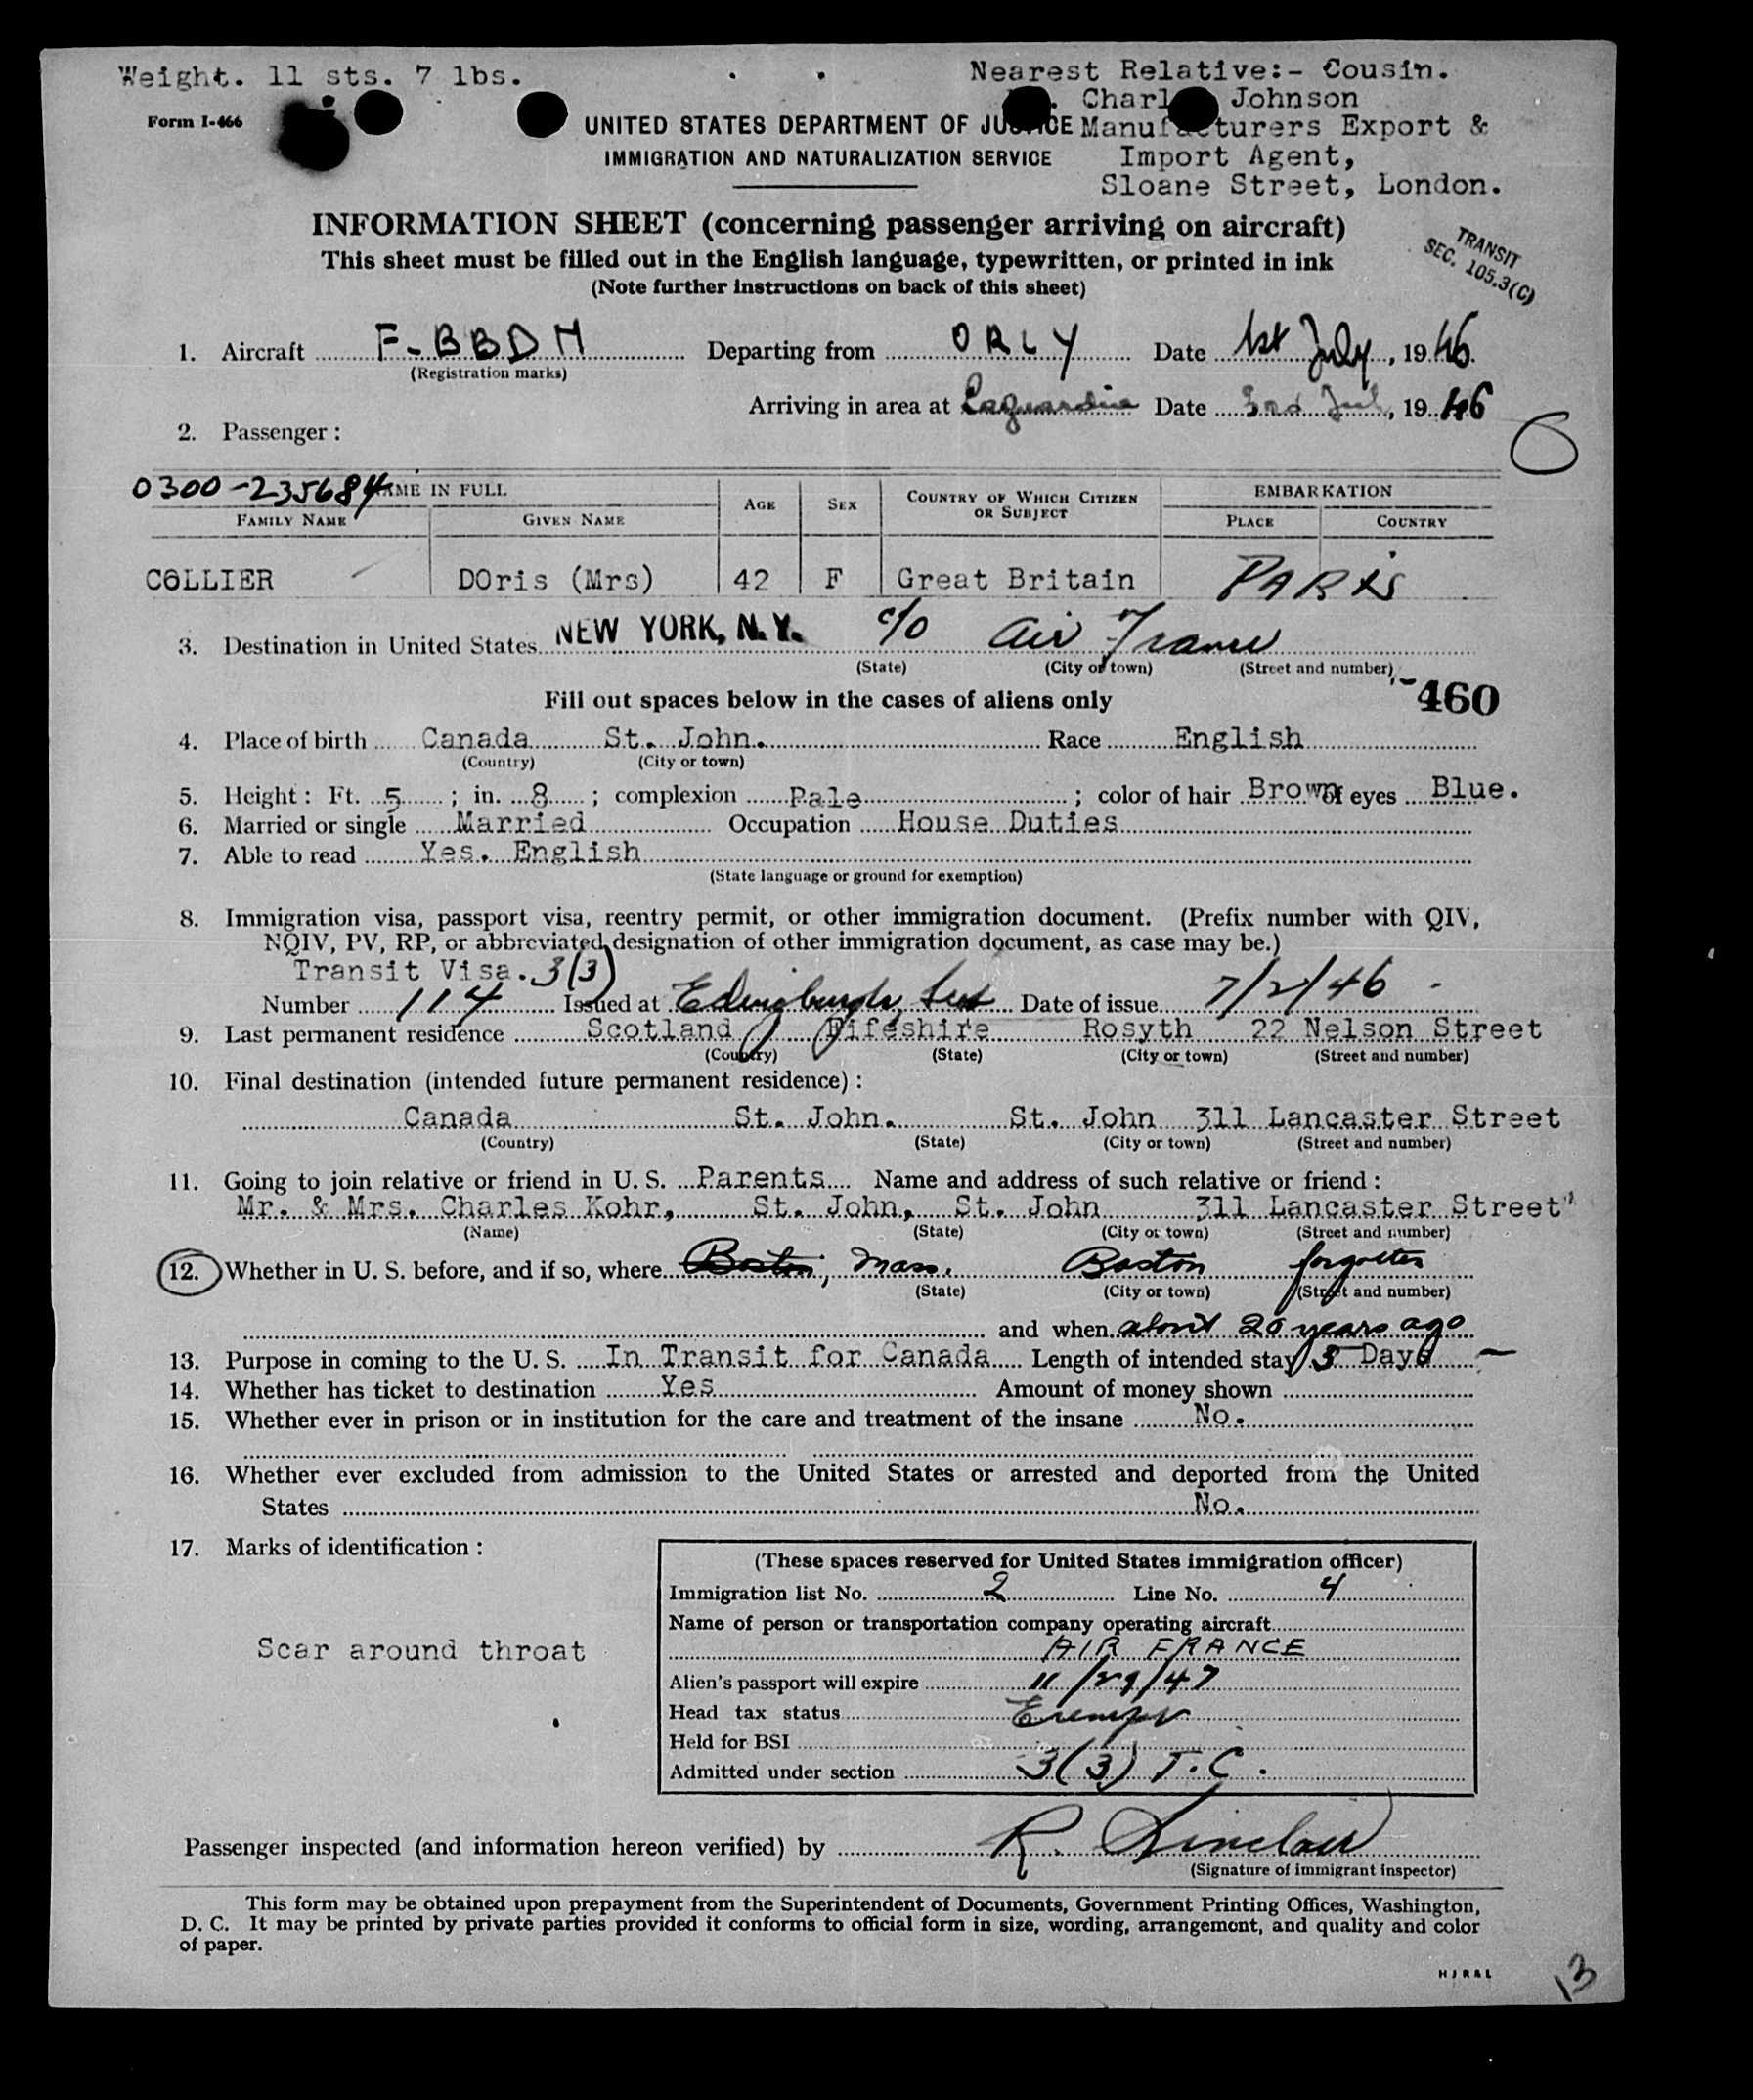 Weight. 11 sts. 7 lbs.
Nearest Relative:- Cousin.
Charl Johnson
Form I-466
UNITED STATES DEPARTMENT OF JUSTICE
Manufacturers Export &
IMMIGRATION AND NATURALIZATION SERVICE
Import Agent,
Sloane Street, London.
INFORMATION SHEET (concerning passenger arriving on aircraft)
TRANSIT
SEC. 105.3(C)
This sheet must be filled out in the English language, typewritten, or printed in ink
(Note further instructions on back of this sheet)
1. Aircraft F-BBDM Departing from ORLY Date 1st July, 1946.
(Registration marks)
Arriving in area at Laguardia Date 3rd Jul, 1946
2. Passenger:
0300-235684 NAME IN FULL AGE SEX COUNTRY OF WHICH CITIZEN OR SUBJECT EMBARKATION
FAMILY NAME GIVEN NAME PLACE COUNTRY
COLLIER DOris (Mrs) 42 F Great Britain PARIS
3. Destination in United States NEW YORK, N.Y. c/o Air France
(State) (City or town) (Street and number)
Fill out spaces below in the cases of aliens only
460
4. Place of birth Canada St. John. Race English
(Country) (City or town)
5. Height: Ft. 5; in. 8; complexion Pale; color of hair Brown of eyes Blue.
6. Married or single Married Occupation House Duties
7. Able to read Yes. English
(State language or ground for exemption)
8. Immigration visa, passport visa, reentry permit, or other immigration document. (Prefix number with QIV,
NQIV, PV, RP, or abbreviated designation of other immigration document, as case may be.)
Transit Visa. 3(3)
Number 114 Issued at Edingburgh, Date of issue 7/2/46
9. Last permanent residence Scotland Fifeshire Rosyth 22 Nelson Street
(Country) (State) (City or town) (Street and number)
10. Final destination (intended future permanent residence):
Canada St. John. St. John 311 Lancaster Street
(Country) (State) (City or town) (Street and number)
11. Going to join relative or friend in U. S. Parents Name and address of such relative or friend:
Mr. & Mrs. Charles Kohr, St. John, St. John 311 Lancaster Street
(Name) (State) (City or town) (Street and number)
12. Whether in U. S. before, and if so, where Boston, Mass. Boston forgotten
(State) (City or town) (Street and number)
and when about 20 years ago
13. Purpose in coming to the U. S. In Transit for Canada Length of intended stay 3 Days
14. Whether has ticket to destination Yes Amount of money shown
15. Whether ever in prison or in institution for the care and treatment of the insane No.
16. Whether ever excluded from admission to the United States or arrested and deported from the United
States No.
17. Marks of identification:
Scar around throat
(These spaces reserved for United States immigration officer)
Immigration list No. 2 Line No. 4
Name of person or transportation company operating aircraft
AIR FRANCE
Alien's passport will expire 11/29/47
Head tax status Exempt
Held for BSI
Admitted under section 3(3) T.C.
Passenger inspected (and information hereon verified) by R. Sinclair
(Signature of immigrant inspector)
This form may be obtained upon prepayment from the Superintendent of Documents, Government Printing Offices, Washington,
D. C. It may be printed by private parties provided it conforms to official form in size, wording, arrangement, and quality and color
of paper.
HJR&L
13